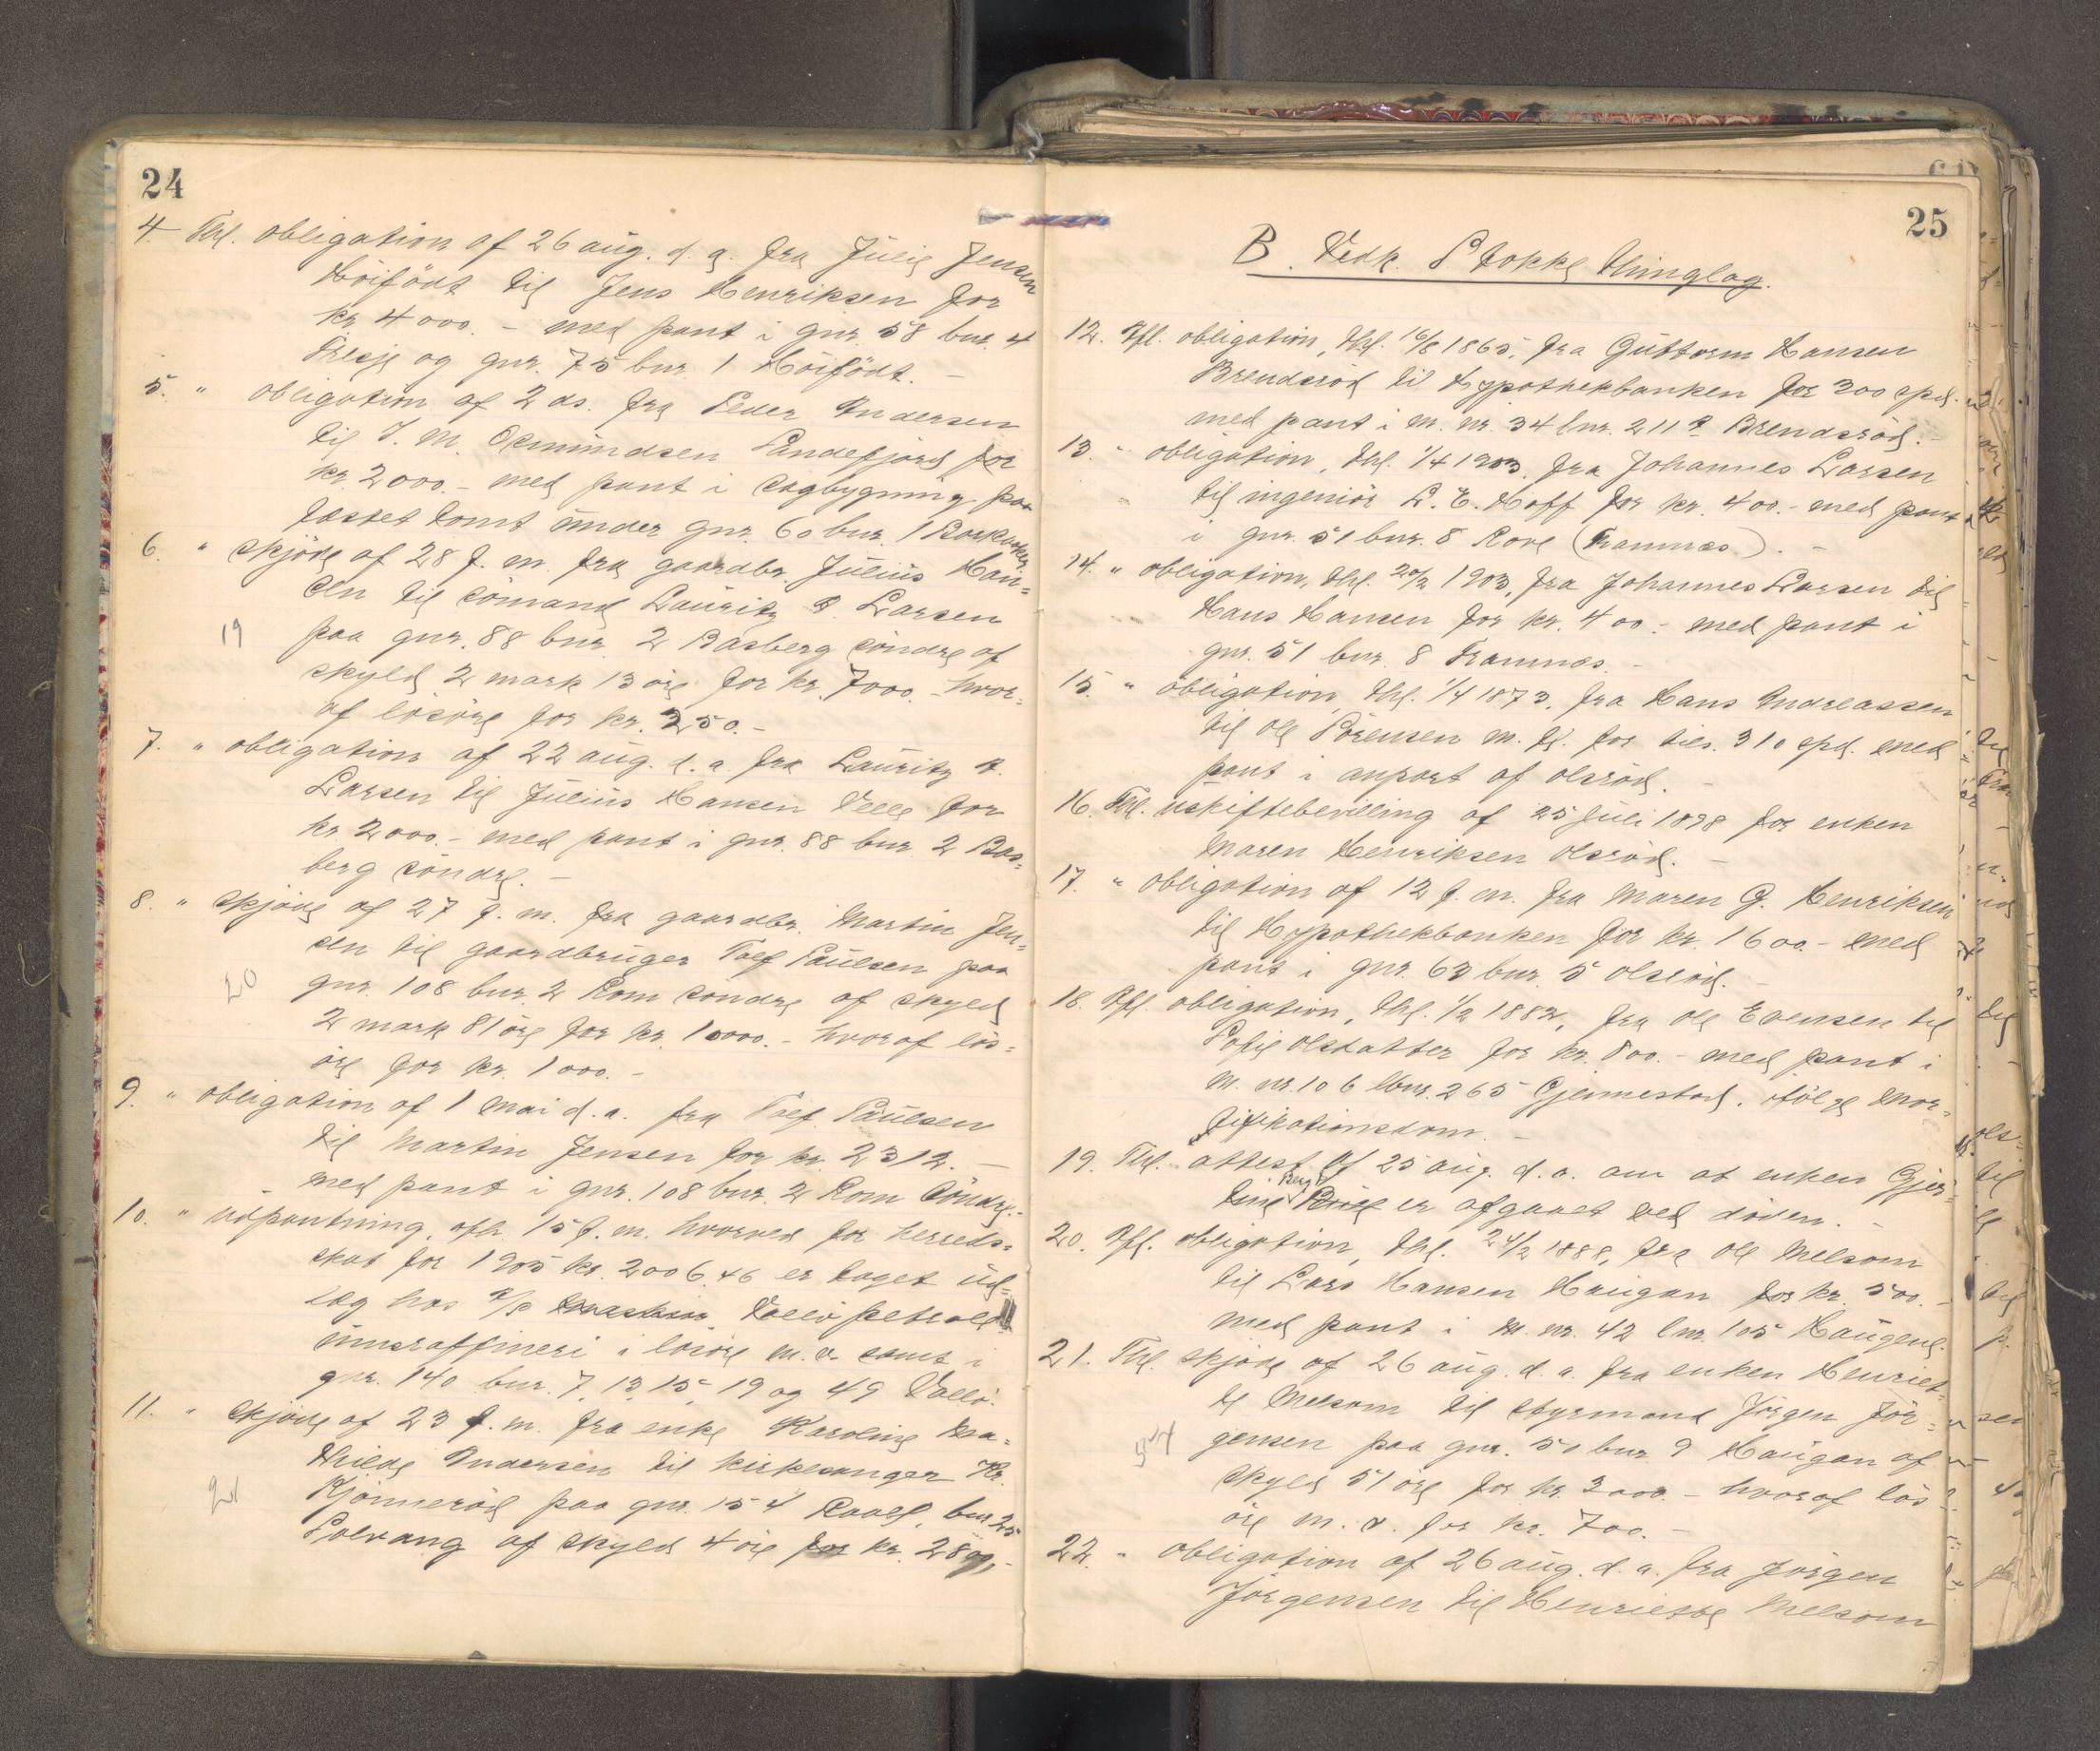 24
4. Thl. obligation af 26 aug. d. a. fra Julie Jensen
Höifödt til Jens Henriksen for
kr. 4000.- med pant i gnr. 58 bnr. 4
Fresje og gnr. 75 bnr. 1 Höifödt. -
5. " obligation af 2 ds. fra Peder Andersen
til J. M. Osmundsen Sandefjord for
kr. 2000.- med pant i sagbygning paa
fæstet tomt under gnr. 60 bnr. 1
6. " skjöde af 28 f. m. fra gaardbr. Julius Han=
sen til sömand Lauritz Larsen
19
paa gnr. 88 bnr. 2 Basberg söndre af
skyld 2 mark 13 öre for kr. 7000.- hvor=
af lösöre for kr. 250.-
7. " obligation af 22 aug. d. a. fra Lauritz
Larsen til Julius Hansen for
kr. 2000.- med pant i gnr. 88 bnr. 2 Bas=
berg söndre. -
8. " skjöde af 27 f. m. fra gaardbr. Martin Jen=
sen til gaardbruger Tolf Paulsen paa
20
gnr. 108 bnr. 2 Rom söndre af skyld
2 mark 81 öre for kr. 10000.- hvoraf lös=
öre for kr. 1000.-
9. " obligation af 1 mai d. a. fra Tolf Paulsen
til Martin Jensen for kr. 2312.-
med pant i gnr. 108 bnr. 2 Rom söndre. -
10. " udpantning, afh. 15 f. m. hvorved for herreds=
skat for 1905 kr. 2006.46 er taget ud=
læg hos a/s Vallö petrole
umsraffineri i lösöre m. v. samt i
gnr. 140 bnr. 7, 13, 15, 19 og 49 Vallö.
11. " skjöde af 23 f. m. fra enke Karoline Ma=
thilde Andersen til kirkesanger Kr.
21
Kjönneröd paa gnr. 154 bnr. 25
Solvang af skyld 4 öre for kr. 2800.-
25
B. Vedk. Stokke thinglag.
12. Afl. obligation, thl. 16/8 1865, fra Guttorm Hansen
Brendsröd til Hypothekbanken for 300 spd.
med pant i m. nr. 34 lnr. 211 Brendsröd. -
13. " obligation, thl. 1/4 1903, fra Johannes Larsen
til ingeniör L. E. Hoff for kr. 400.- med pant
i gnr. 51 bnr. 8 Rove (Framnæs). -
14. " obligation, thl. 20/2 1903, fra Johannes Larsen til
Hans Hansen for kr. 400.- med pant i
gnr. 51 bnr. 8 Framnæs. -
15. " obligation, thl. 1/4 1873, fra Hans Andreassen
til Ole Sörensen m. fl. for tils. 310 spd. med
pant i anpart af Olsröd. -
16. Thl. uskiftebevilling af 25 juli 1898 for enken
Maren Henriksen Olsröd. -
17. " obligation af 12 f. m. fra Maren G. Henriksen
til Hypothekbanken for kr. 1600.- med
pant i gnr. 63 bnr. 5 Olsröd. -
18. Afl. obligation, thl. 1/2 1882, fra Ole Evensen til
Sofie Olsdatter for kr. 800.- med pant i
m. nr. 106 lbnr. 265 Gjennestad, ifölge mor=
tifikationsdom. -
19. Thl. attest af 25 aug. d. a. om at enken Gjer=
tine Berg er afgaaet ved döden. -
20. Afl. obligation, thl. 24/2 1888, fra Ole Melsom
til Lars Hansen Haugan for kr. 500.-
med pant i m. nr. 42 lnr. 105 Haugene.
21. Thl. skjöde af 26 aug. d. a. fra enken Henriet=
te Melsom til styrmand Jörgen Jör=
gensen paa gnr. 50 bnr. 9 Haugan af
skyld 51 öre for kr. 3000.- hvoraf lös=
öre m. v. for kr. 700.-
22. " obligation af 26 aug. d. a. fra Jörgen
Jörgensen til Henriette Melsom